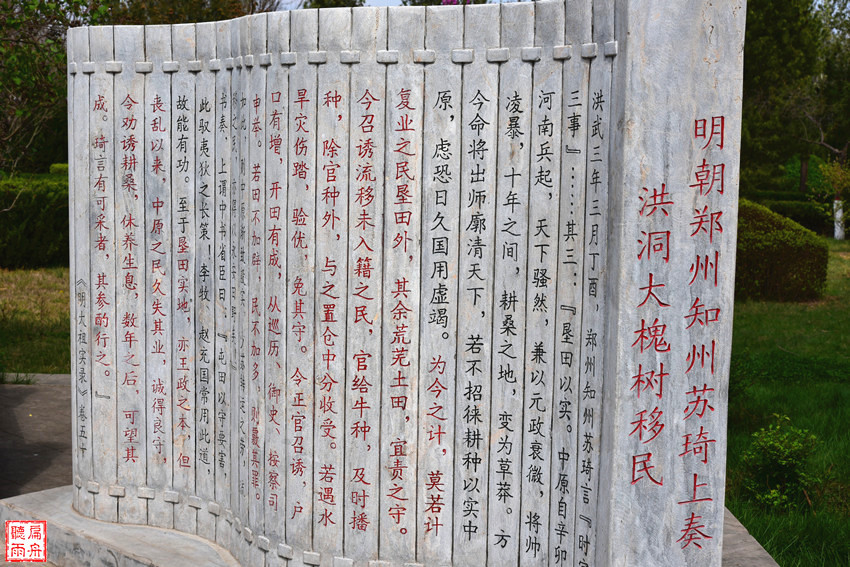 明朝郑州知州苏琦上奏
洪洞大槐树移民
洪武三年三月丁酉，郑州知州苏琦言『时宜
三事』……其三：『垦田以实。中原自辛卯
河南兵起，天下骚然，兼以元政衰微，将帅
凌暴，十年之间，耕桑之地，变为草莽。方
今命将出师廓清天下，若不招徕耕种以实中
原，虑恐日久国用虚竭。为今之计，莫若计
复业之民垦田外，其余荒芜土田，宜责之守。
今召诱流移未入籍之民，官给牛种，及时播
种，除官种外，与之置仓中分收受。若遇水
旱灾伤踏，验优，免其守。令正官召诱，户
口有增，开田有成，从巡历、御史、按察司
申举。若田不加辟，民不加多，则覈其罪。
如此，则中原渐致殷实，少苏转运之劳，流
移之民，亦得以永安田野矣。』
书奏，上谓中书省臣曰：『屯田以守要害，
此驭夷狄之长策！李牧、赵充国常用此道，
故能有功。至于垦田实地，亦王政之本，但
丧乱以来，中原之民久失其业，诚得良守，
令劝诱耕桑，休养生息，数年之后，可望其
成。琦言有可采者，其参酌行之。』
《明太祖实录》卷五十
扁舟
聽雨